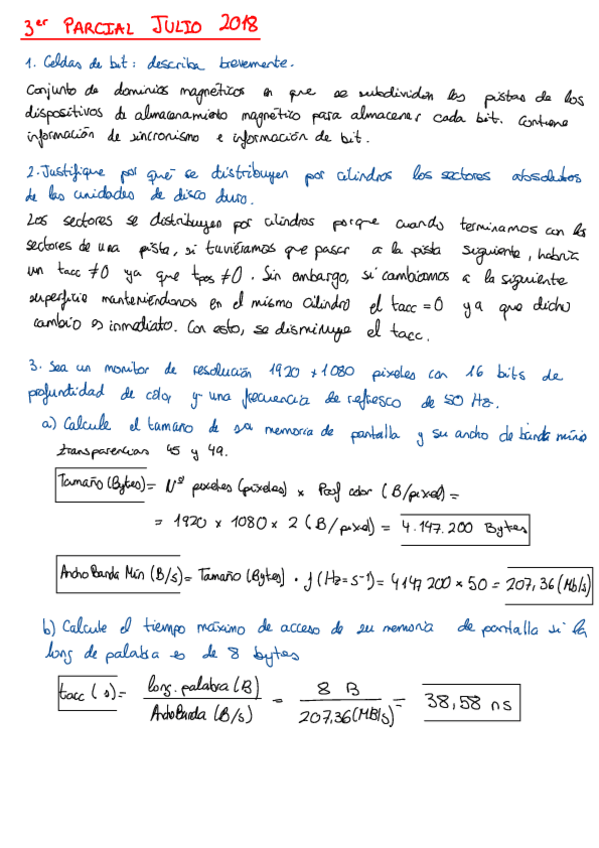 3er PARCIAL JULIO 2018
1. Celdas de bit: describa brevemente.
Conjunto de dominios magnéticos en que se subdividen las pistas de los
dispositivos de almacenamiento magnético para almacenar cada bit. Contiene
información de sincronismo e información de bit.
2. Justifique por qué se distribuyen por cilindros los sectores absolutos
de las unidades de disco duro.
Los sectores se distribuyen por cilindros porque cuando terminamos con los
sectores de una pista, si tuviéramos que pasar a la pista siguiente, habría
un tacc ≠ 0 ya que tpos ≠ 0. Sin embargo, si cambiamos a la siguiente
superficie manteniéndonos en el mismo cilindro el tacc = 0 ya que dicho
cambio es inmediato. Con esto, se disminuye el tacc.
3. Sea un monitor de resolución 1920 x 1080 pixeles con 16 bits de
profuntidad de color y una frecuencia de refresco de 50 Hz.
a) Calcule el tamaño de su memoria de pantalla y su ancho de banda mínimo
transparencias 45 y 49.
Tamaño (Bytes) = Nº pixeles (pixeles) x Prof color (B/pixel) =
= 1920 x 1080 x 2 (B/pixel) = 4.147.200 Bytes
Ancho Banda Min (B/s) = Tamaño (Bytes) · f (Hz = s⁻¹) = 4147200 x 50 = 207,36 (Mb/s)
b) Calcule el tiempo máximo de acceso de su memoria de pantalla si la
long de palabra es de 8 bytes
tacc (s) = long. palabra (B) / Ancho Banda (B/s) = 8 B / 207,36 (MB/s) = 38,58 ns